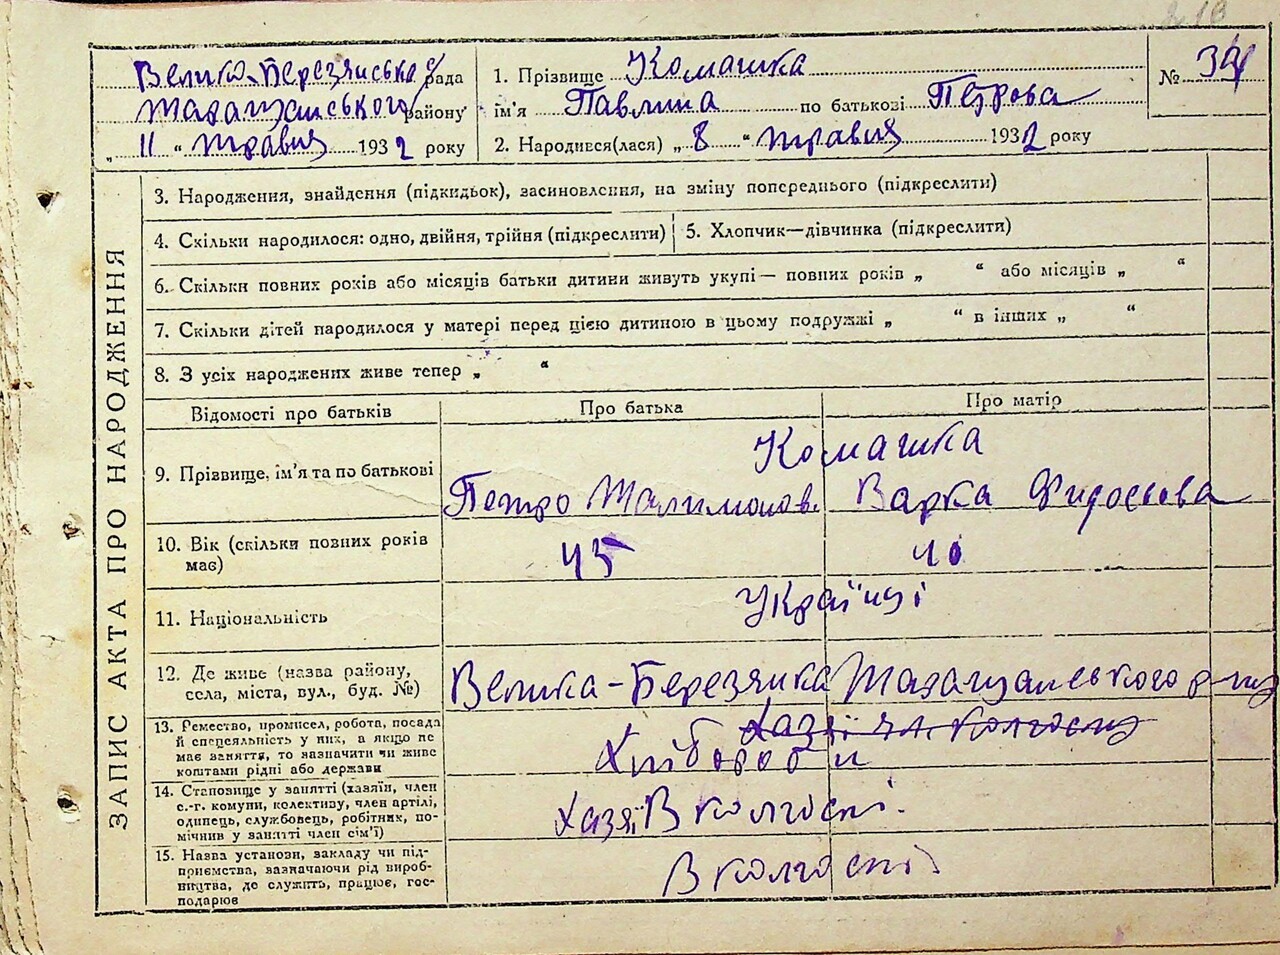 Велико-Березянська рада
Таращанського району
„ 11 “ травня 1932 року
1. Прізвище Комашка
ім'я Павлина по батькові Петрова
2. Народився(лася) „ 8 “ травня 1932 року
№ 34
ЗАПИС АКТА ПРО НАРОДЖЕННЯ
3. Народження, знайдення (підкидьок), засиновлення, на зміну попереднього (підкреслити)
4. Скільки народилося: одно, двійня, трійня (підкреслити)
5. Хлопчик—дівчинка (підкреслити)
6. Скільки повних років або місяців батьки дитини живуть укупі — повних років „ “ або місяців „ “
7. Скільки дітей народилося у матері перед цією дитиною в цьому подружжі „ “ в інших „ “
8. З усіх народжених живе тепер „ “
Відомості про батьків
Про батька
Про матір
9. Прізвище, ім'я та по батькові
Комашка
Петро Талимонов.
Варка Фидосьова
10. Вік (скільки повних років
має)
45
40
11. Національність
Українці
12. Де живе (назва району,
села, міста, вул., буд. №)
Велика-Березянка Таращанського р-ну
13. Ремество, промисел, робота, посада
й спецеяльність у них, а якщо не
має заняття, то зазначити чи живе
коштами рідні або держави
Хлібороби
14. Становище у занятті (хазяїн, член
с.-г. комуни, колективу, член артілі,
одинець, службовець, робітник, по-
мічнив у занятті член сім'ї)
В колгоспі.
15. Назва установи, закладу чи під-
приємства, зазначаючи рід вироб-
ництва, де служить, працює, гос-
подарює
В колгоспі